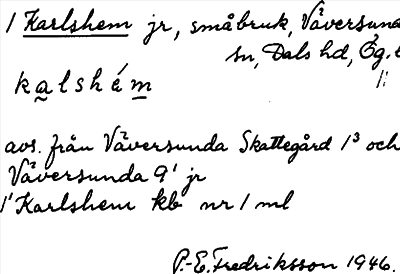 1 Karlshem jr, småbruk, Väversunda
sn, Dals hd, Ög. l
1:
kalshém
avs. från Väversunda Skattegård 1³ och
Väversunda 9¹ jr
1¹ Karlshem kb nr 1 ml
P.-E. Fredriksson 1946.